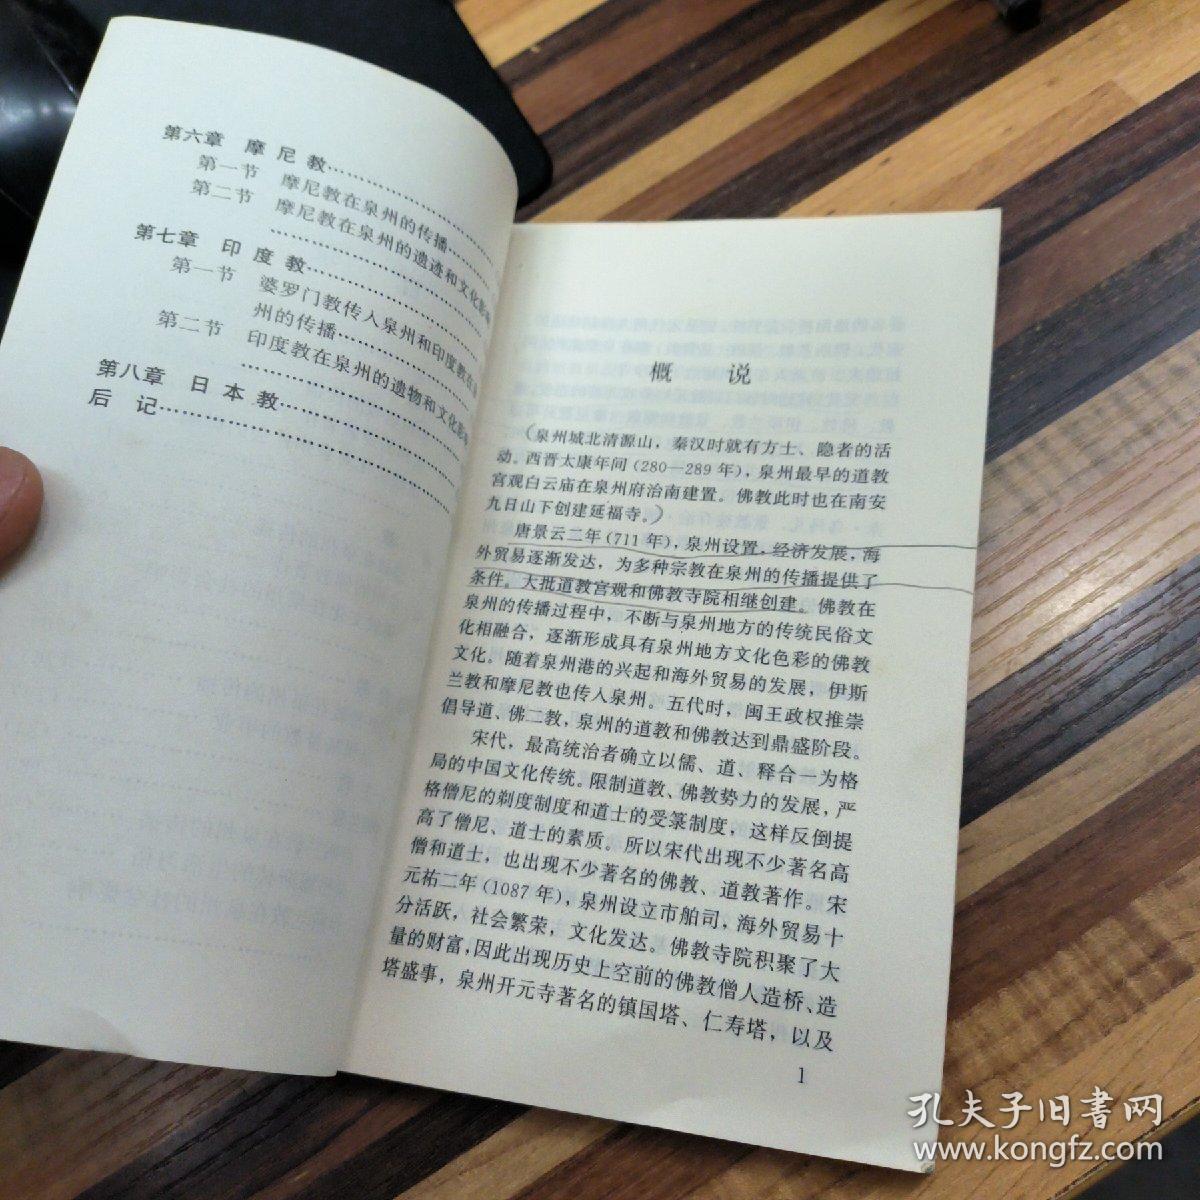 第六章 摩尼教
第一节 摩尼教在泉州的传播
第二节 摩尼教在泉州的遗迹和文化影响
第七章 印度教
第一节 婆罗门教传入泉州和印度教在泉
州的传播
第二节 印度教在泉州的遗物和文化影响
第八章 日本教
后记
概 说
(泉州城北清源山，秦汉时就有方士、隐者的活
动。西晋太康年间(280—289年)，泉州最早的道教
宫观白云庙在泉州府治南建置。佛教此时也在南安
九日山下创建延福寺。)
唐景云二年(711年)，泉州设置，经济发展，海
外贸易逐渐发达，为多种宗教在泉州的传播提供了
条件。大批道教宫观和佛教寺院相继创建。佛教在
泉州的传播过程中，不断与泉州地方的传统民俗文
化相融合，逐渐形成具有泉州地方文化色彩的佛教
文化。随着泉州港的兴起和海外贸易的发展，伊斯
兰教和摩尼教也传入泉州。五代时，闽王政权推崇
倡导道、佛二教，泉州的道教和佛教达到鼎盛阶段。
宋代，最高统治者确立以儒、道、释合一为格
局的中国文化传统。限制道教、佛教势力的发展，严
格僧尼的剃度制度和道士的受箓制度，这样反倒提
高了僧尼、道士的素质。所以宋代出现不少著名高
僧和道士，也出现不少著名的佛教、道教著作。宋
元祐二年(1087年)，泉州设立市舶司，海外贸易十
分活跃，社会繁荣，文化发达。佛教寺院积聚了大
量的财富，因此出现历史上空前的佛教僧人造桥、造
塔盛事，泉州开元寺著名的镇国塔、仁寿塔，以及
1
孔夫子旧书网
www.kongfz.com